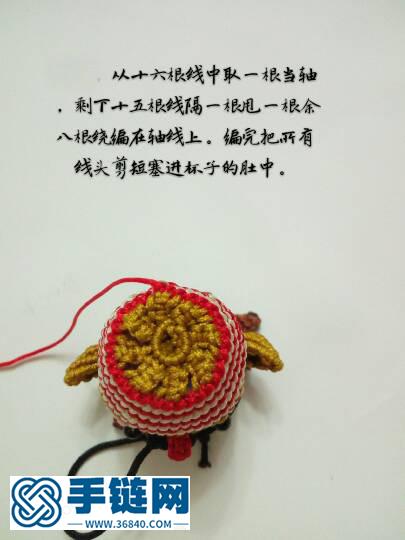 从十六根线中取一根当轴
，剩下十五根线隔一根甩一根余
八根绕编在轴线上。编完把所有
线头剪短塞进杯子的肚中。
手链网
WWW.36840.COM